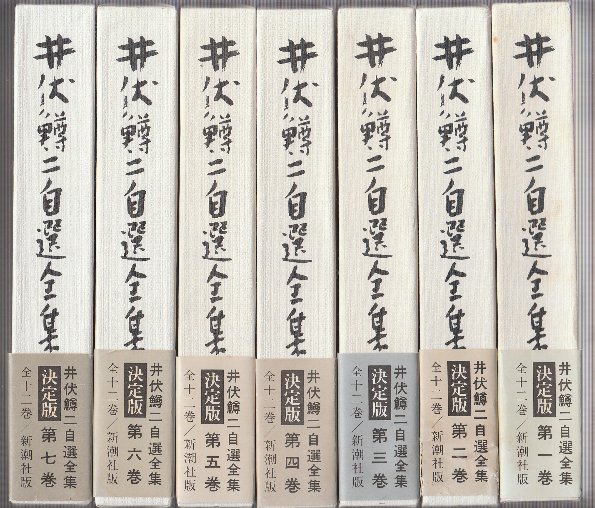 井伏鱒二自選全集
井伏鱒二自選全集
決定版 第一巻
全十二巻/新潮社版
井伏鱒二自選全集
井伏鱒二自選全集
決定版 第二巻
全十二巻/新潮社版
井伏鱒二自選全集
井伏鱒二自選全集
決定版 第三巻
全十二巻/新潮社版
井伏鱒二自選全集
井伏鱒二自選全集
決定版 第四巻
全十二巻/新潮社版
井伏鱒二自選全集
井伏鱒二自選全集
決定版 第五巻
全十二巻/新潮社版
井伏鱒二自選全集
井伏鱒二自選全集
決定版 第六巻
全十二巻/新潮社版
井伏鱒二自選全集
井伏鱒二自選全集
決定版 第七巻
全十二巻/新潮社版